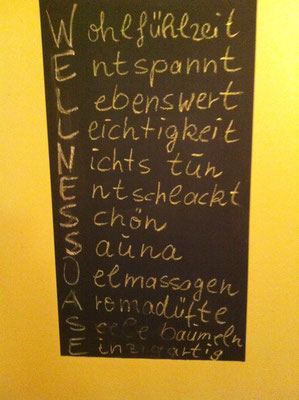 Wohlfühlzeit
Entspannt
Lebenswert
Leichtigkeit
Nichts tun
Entschlackt
Schön
Sauna
Oelmassagen
Aromadüfte
Seele baumeln
Einzigartig